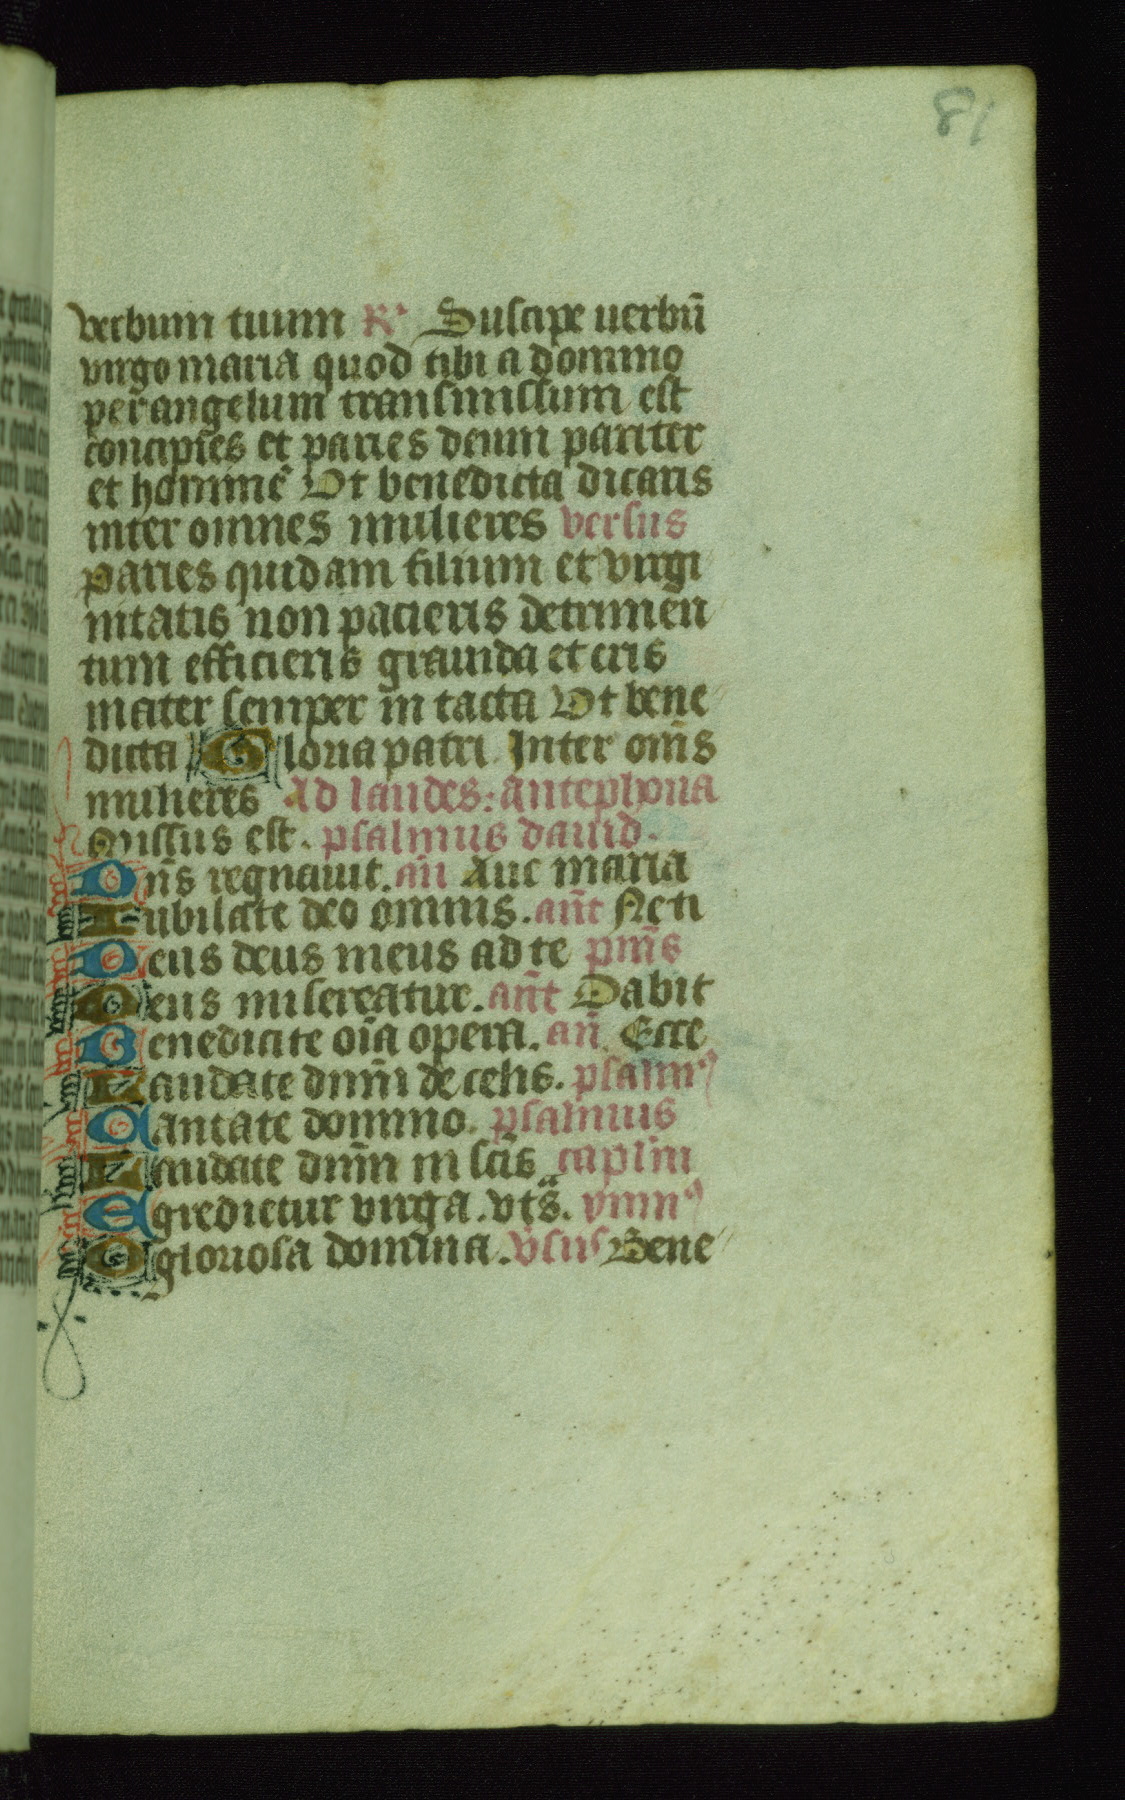 81
verbum tuum R' Suscipe uerbū
virgo maria quod tibi a domino
per angelum transmissum est
concipies et paries deum pariter
et hominē Vt benedicta dicaris
inter omnes mulieres versus
Paries quidam filium et virgi
nitatis non pacieris detrimen
tum efficieris grauida et eris
mater semper in tacta Vt bene
dicta Gloria patri Inter om̄s
mulieres Ad laudes: antephona
Missus est. psalmus dauid.
Dn̄s regnauit. an̄ Aue maria
Iubilate deo omnis. an̄t Ne ti
Deus deus meus ad te pm̄s
Deus misereatur. an̄t Dabit
Benedicite oīa opera. an̄ Ecce
Laudate dnm̄ de celis. psalm⁹
Cantate domino. psalmus
Laudate dnm̄ in sc̄is caplm̄
Egredietur virga. vts̄. ymn⁹
O gloriosa domina. v̄sus Bene